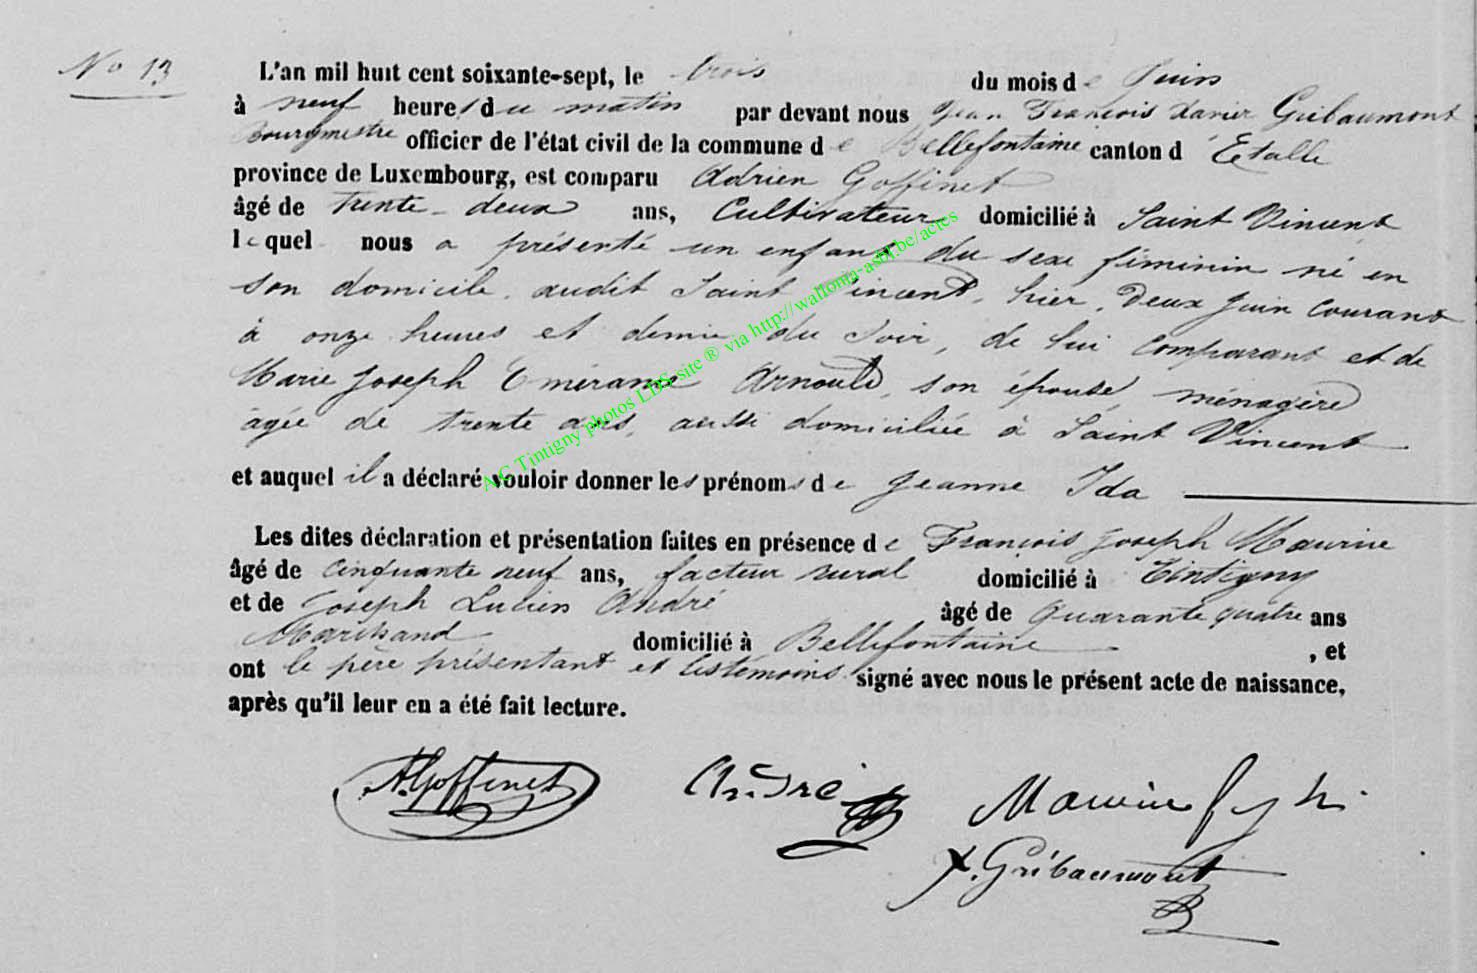 No 13
L'an mil huit cent soixante-sept, le trois du mois de Juin
à neuf heures du matin par devant nous Jean François Xavier Gribaumont
Bourgmestre officier de l'état civil de la commune de Bellefontaine canton d'Etalle
province de Luxembourg, est comparu Adrien Goffinet
âgé de trente-deux ans, Cultivateur domicilié à Saint Vincent
lequel nous a présenté un enfant du sexe féminin né en
son domicile audit Saint Vincent, hier, deux Juin courant
à onze heures et demie du soir, de lui comparant et de
Marie Joseph Emérance Arnould, son épouse, ménagère
âgée de trente ans, aussi domiciliée à Saint Vincent
et auquel il a déclaré vouloir donner les prénoms de Jeanne Ida
Les dites déclaration et présentation faites en présence de François Joseph Maurice
âgé de cinquante neuf ans, facteur rural domicilié à Tintigny
et de Joseph Lucien André âgé de quarante quatre ans
Marchand domicilié à Bellefontaine , et
ont le père présentant et les témoins signé avec nous le présent acte de naissance,
après qu'il leur en a été fait lecture.
A. Goffinet André
X. Gribaumont
A.C Tintigny photos LDS-site ® via http://wallonia-asbl.be/actes